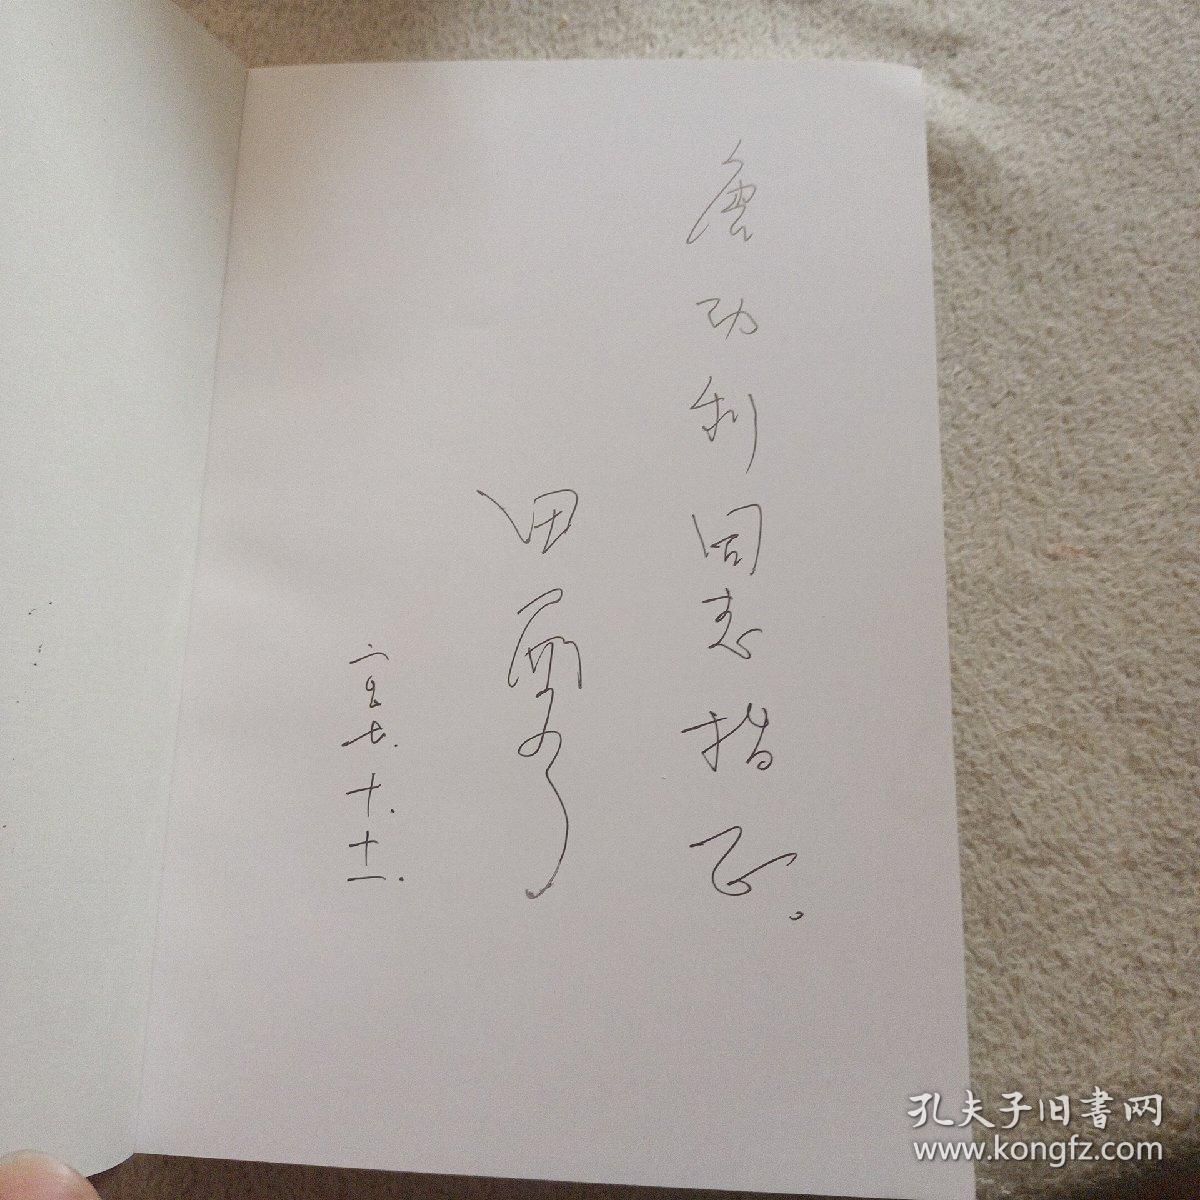 唐功利同志指正。
田
二〇〇七.十.十一.
孔夫子旧書网
www.kongfz.com